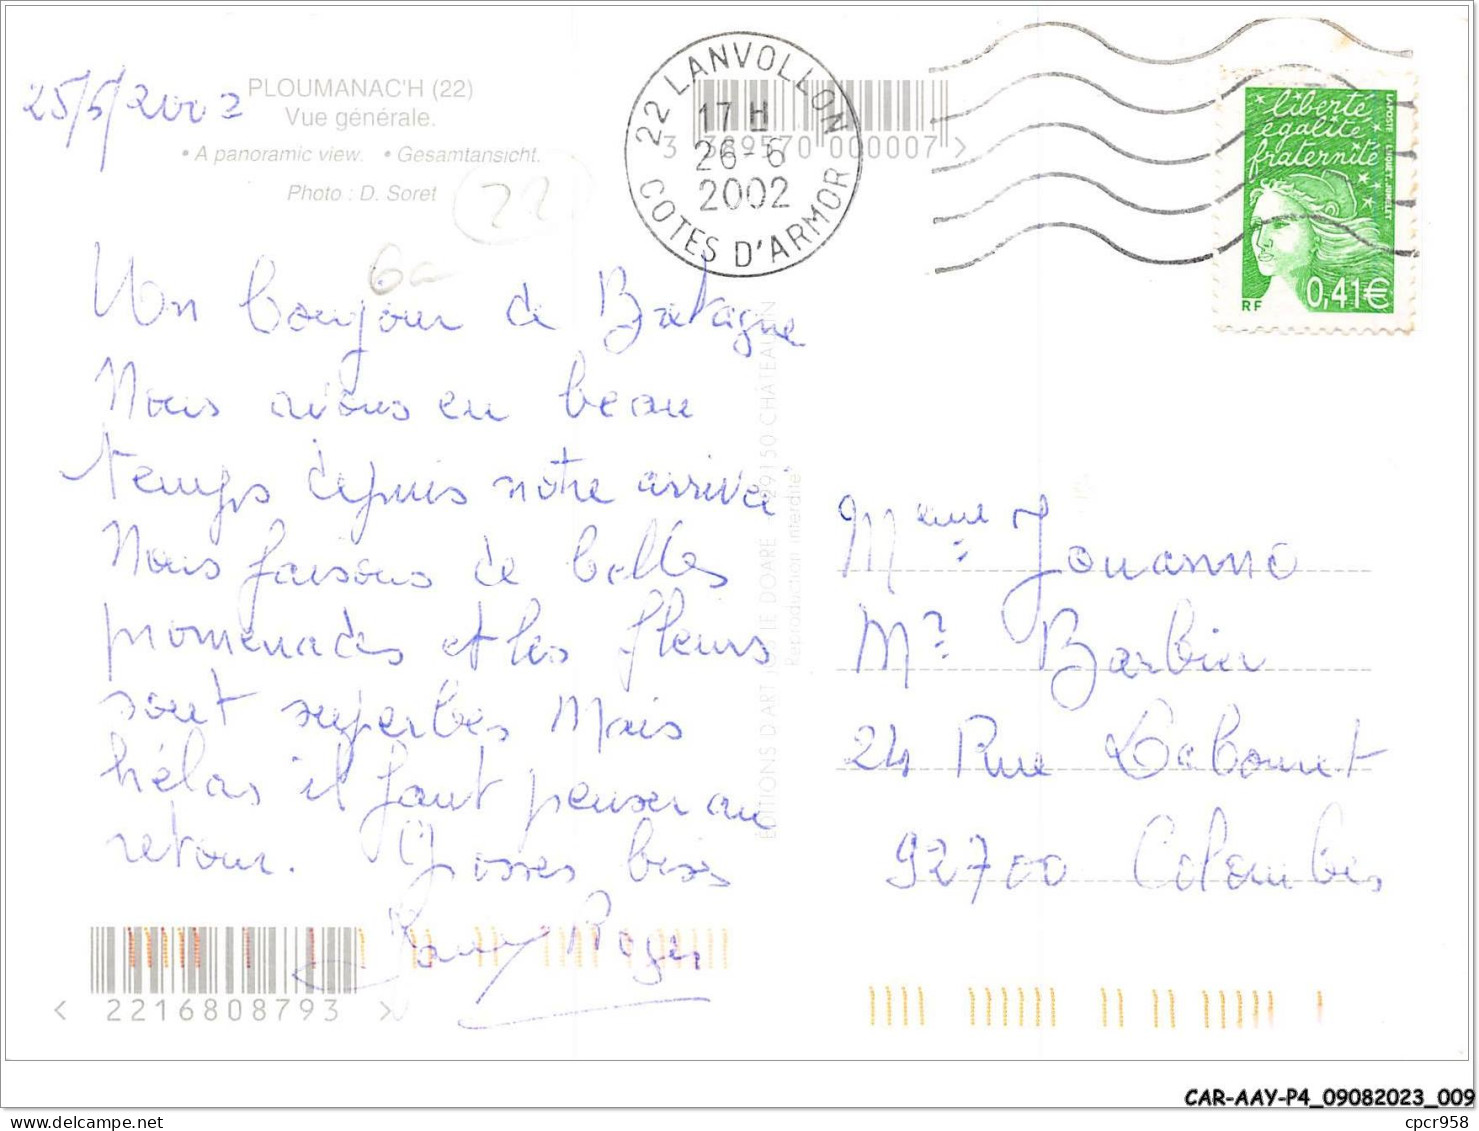 25/6/2002
PLOUMANAC'H (22)
Vue générale.
• A panoramic view. • Gesamtansicht.
Photo : D. Soret
22
6a
22 LANVOLLON
17 H
26-6
2002
COTES D'ARMOR
3 389570 000007 >
liberté
égalité
fraternité
LA POSTE LUQUET, JUMELET
RF
0,41€
Un bonjour de Bretagne
Nous avons eu beau
temps depuis notre arrivée
Nous faisons de belles
promenades et les fleurs
sont superbes Mais
hélas il faut penser au
retour. Grosses bises
Roger
ÉDITIONS D'ART JOS LE DOARÉ - 29150 CHÂTEAULIN
Reproduction interdite
Meme Jouanno
Mr Barbier
24 Rue Labouret
92700 Colombes
< 2216808793 >
CAR-AAY-P4_09082023_009
cpcr958